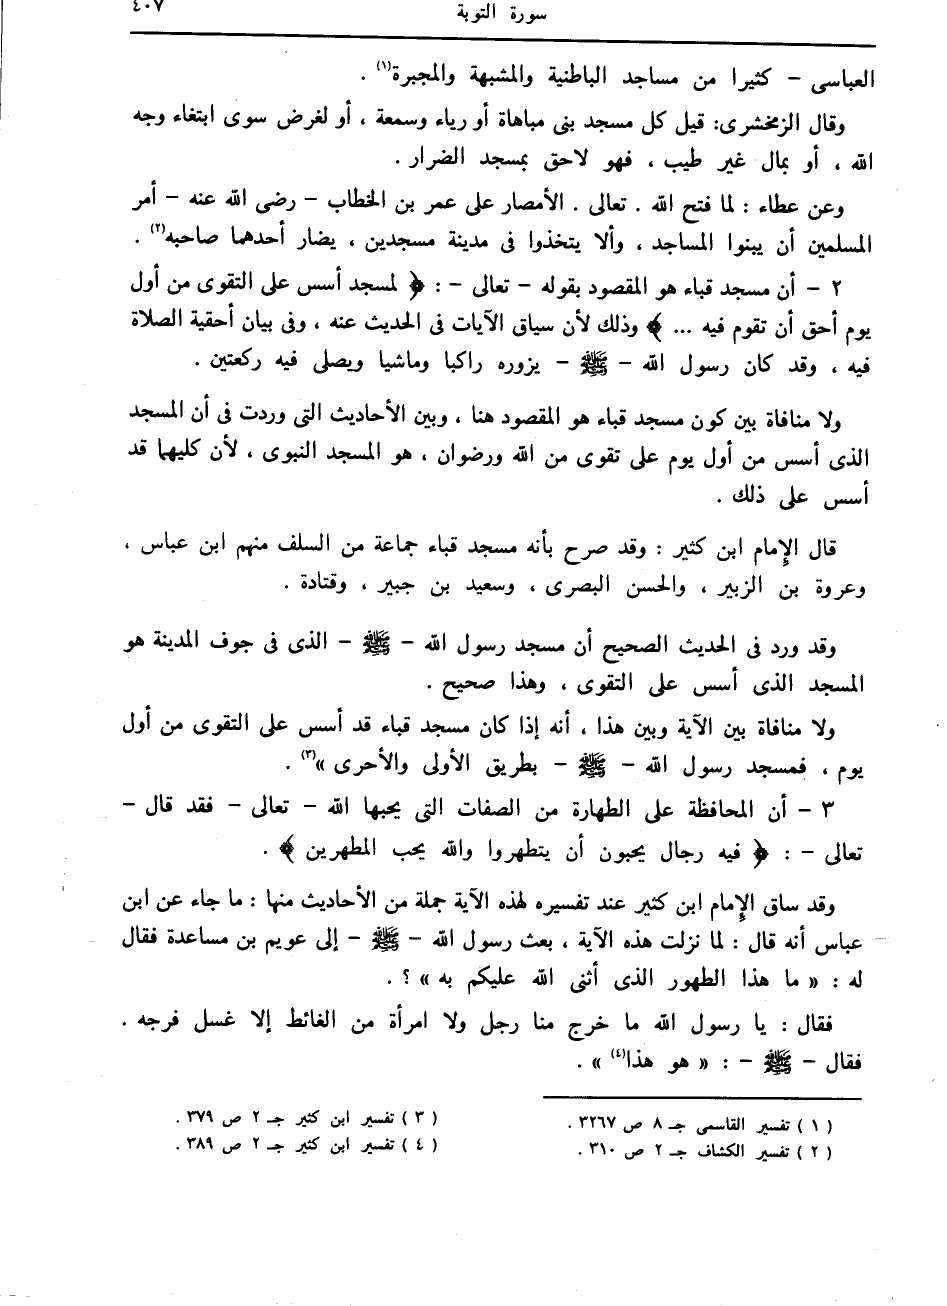 سورة التوبة ٤٠٧
العباسى – كثيرا من مساجد الباطنية والمشبهة والمجبرة(١) .
وقال الزمخشرى: قيل كل مسجد بنى مباهاة أو رياء وسمعة ، أو لغرض سوى ابتغاء وجه
الله ، أو بمال غير طيب ، فهو لاحق بمسجد الضرار .
وعن عطاء : لما فتح الله . تعالى . الأمصار على عمر بن الخطاب – رضى الله عنه – أمر
المسلمين أن يبنوا المساجد ، وألا يتخذوا فى مدينة مسجدين ، يضار أحدهما صاحبه(٢) .
٢ – أن مسجد قباء هو المقصود بقوله – تعالى – : ﴿ لمسجد أسس على التقوى من أول
يوم أحق أن تقوم فيه ... ﴾ وذلك لأن سياق الآيات فى الحديث عنه ، وفى بيان أحقية الصلاة
فيه ، وقد كان رسول الله – ﷺ – يزوره راكبا وماشيا ويصلى فيه ركعتين .
ولا منافاة بين كون مسجد قباء هو المقصود هنا ، وبين الأحاديث التى وردت فى أن المسجد
الذى أسس من أول يوم على تقوى من الله ورضوان ، هو المسجد النبوى ، لأن كليهما قد
أسس على ذلك .
قال الإمام ابن كثير : وقد صرح بأنه مسجد قباء جماعة من السلف منهم ابن عباس ،
وعروة بن الزبير ، والحسن البصرى ، وسعيد بن جبير ، وقتادة .
وقد ورد فى الحديث الصحيح أن مسجد رسول الله – ﷺ – الذى فى جوف المدينة هو
المسجد الذى أسس على التقوى ، وهذا صحيح .
ولا منافاة بين الآية وبين هذا ، أنه إذا كان مسجد قباء قد أسس على التقوى من أول
يوم ، فمسجد رسول الله – ﷺ – بطريق الأولى والأحرى »(٣) .
٣ – أن المحافظة على الطهارة من الصفات التى يحبها الله – تعالى – فقد قال –
تعالى – : ﴿ فيه رجال يحبون أن يتطهروا والله يحب المطهرين ﴾ .
وقد ساق الإمام ابن كثير عند تفسيره لهذه الآية جملة من الأحاديث منها : ما جاء عن ابن
عباس أنه قال : لما نزلت هذه الآية ، بعث رسول الله – ﷺ – إلى عويم بن مساعدة فقال
له : « ما هذا الطهور الذى أثنى الله عليكم به » ؟ .
فقال : يا رسول الله ما خرج منا رجل ولا امرأة من الغائط إلا غسل فرجه .
فقال – ﷺ – : « هو هذا(٤) » .
( ١ ) تفسير القاسمى جـ ٨ ص ٣٢٦٧ .
( ٢ ) تفسير الكشاف جـ ٢ ص ٣١٠ .
( ٣ ) تفسير ابن كثير جـ ٢ ص ٣٧٩ .
( ٤ ) تفسير ابن كثير جـ ٢ ص ٣٨٩ .